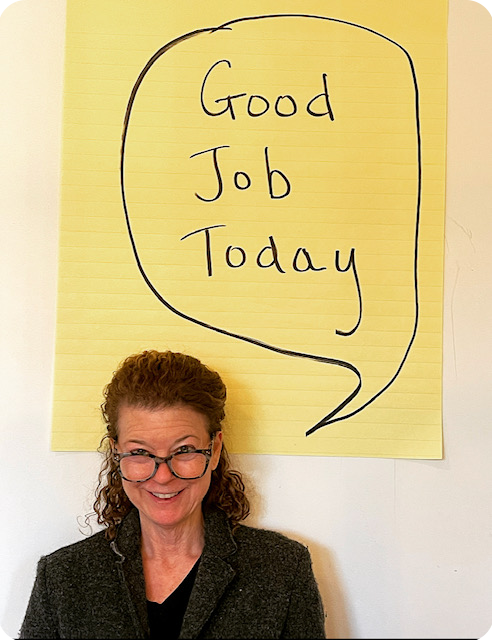 Good
Job
Today